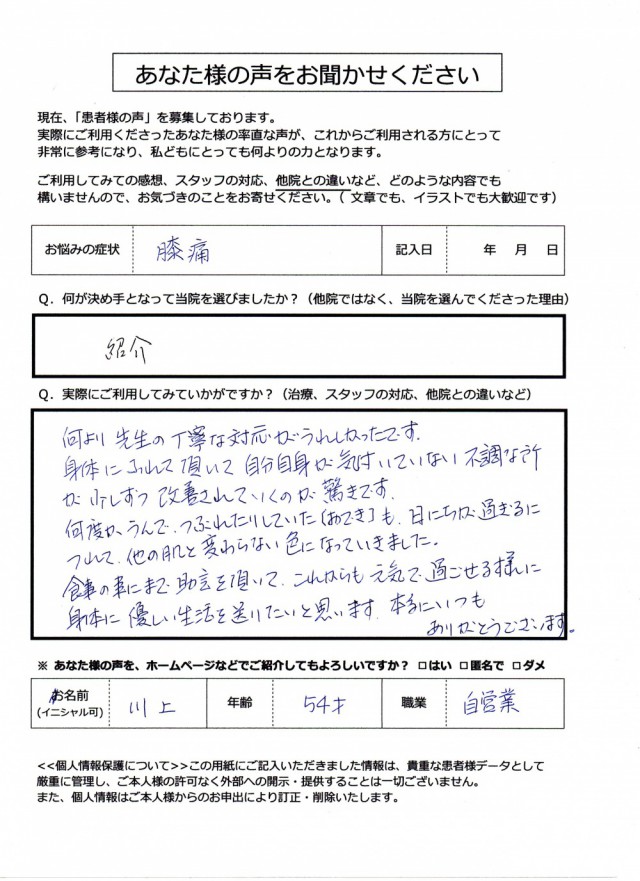 あなた様の声をお聞かせください
現在、「患者様の声」を募集しております。
実際にご利用くださったあなた様の率直な声が、これからご利用される方にとって
非常に参考になり、私どもにとっても何よりの力となります。
ご利用してみての感想、スタッフの対応、他院との違いなど、どのような内容でも
構いませんので、お気づきのことをお寄せください。（ 文章でも、イラストでも大歓迎です）
お悩みの症状 膝痛 記入日 年 月 日
Q．何が決め手となって当院を選びましたか？（他院ではなく、当院を選んでくださった理由）
紹介
Q．実際にご利用してみていかがですか？（治療、スタッフの対応、他院との違いなど）
何より 先生の丁寧な対応がうれしかったです.
身体に ふれて頂いて 自分自身が気付いていない 不調な所
が 少しずつ 改善されていくのが 驚きです.
何度か、うんで、つぶれたりしていた〔おでき〕も、日にちが過ぎるに
つれて、他の肌と変わらない色になっていきました。
食事の事にまで 助言を頂いて、これからも 元気で、過ごせる様に
身体に 優しい生活を送りたいと思います. 本当にいつも
ありがとうございます。
※ あなた様の声を、ホームページなどでご紹介してもよろしいですか？ □はい □匿名で □ダメ
お名前 川上 年齢 54才 職業 自営業
(イニシャル可)
<<個人情報保護について>>この用紙にご記入いただきました情報は、貴重な患者様データとして
厳重に管理し、ご本人様の許可なく外部への開示・提供することは一切ございません。
また、個人情報はご本人様からのお申出により訂正・削除いたします。